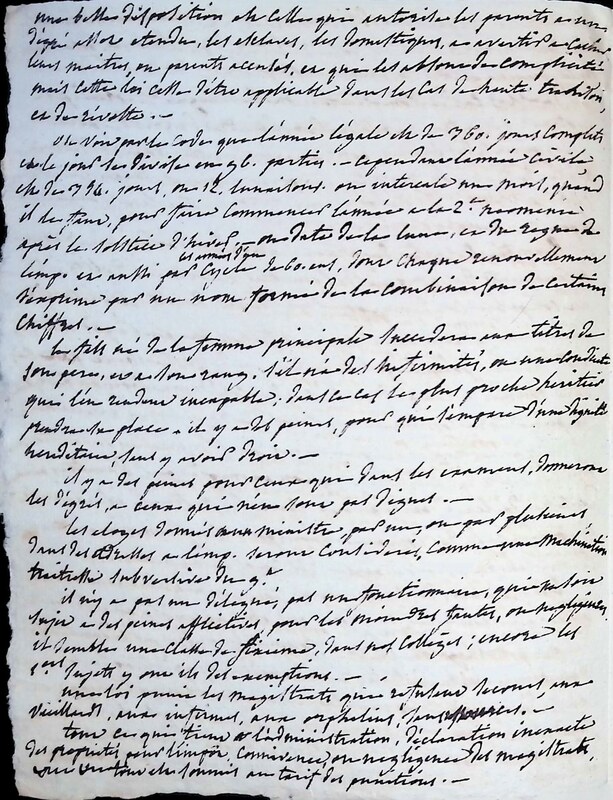 une belle disposition est celle qui autorise les parents a un
degré assez etendu, les esclaves, les domestiques, a avertir
leurs maitres, ou parents accusés, et qui les absout de complicité
mais cette loi cesse d'être applicable dans les cas de haute trahison,
et de revolte. —
on voit par le code que l'année légale est de 360. jours complets
et le jour se divise en 96. parties. — cependant l'année civile
est de 354. jours, ou 12. lunaisons. on intercale un mois, quand
il le faut, pour faire commencer l'année a la 2e. neomenie
après le solstice d'hiver. — on date de la lune, et du regne de
l'emp. et aussi par Cycle de 60. ans, dont chaque renouvellement
s'exprime par un nom formé de la combinaison de certains
chiffres. —
le fils né de la femme principale succedera aux titres de
son pere, et a son rang, s'il n'a des infirmités, ou une conduite
qui l'en rendent incapable; dans ce cas le plus proche heritier
prendra sa place. il y a des peines, pour qui s'empare d'une dignité
hereditaire, sans y avoir droit. —
il y a des peines pour ceux qui dans les examens, donneront
les dégrés, a ceux qui n'en sont pas dignes. —
les eloges donnés aux ministres, par un, ou par plusieurs
dans des adresses a l'emp. seront considerés, comme une machination
traitresse subversive du gt.
il n'y a pas un délegué, pas un fonctionnaire, qui ne soit
sujet a des peines afflictives, pour les moindres fautes, ou negligences,
il semble une classe de sixieme, dans nos colléges; encore les
sujets y ont ils des exemptions. —
une loi punit les magistrats qui refusent secours, aux
vieillards, aux infirmes, aux orphelins, sans
tout ce qui tient a l'administration, déclaration inexacte
des proprietés pour l'impôt, connivence, ou negligence des magistrats,
tout est soumis au tarif des punitions. —